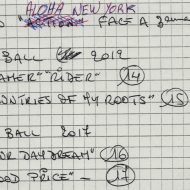 ALOHA NEW YORK
FACE A
BALL 2019
"RIDER" 14
OUNTRIES OF MY ROOTS" 15
BALL 2017
UR DAYDREAM" 16
OOD PRICE" - 17